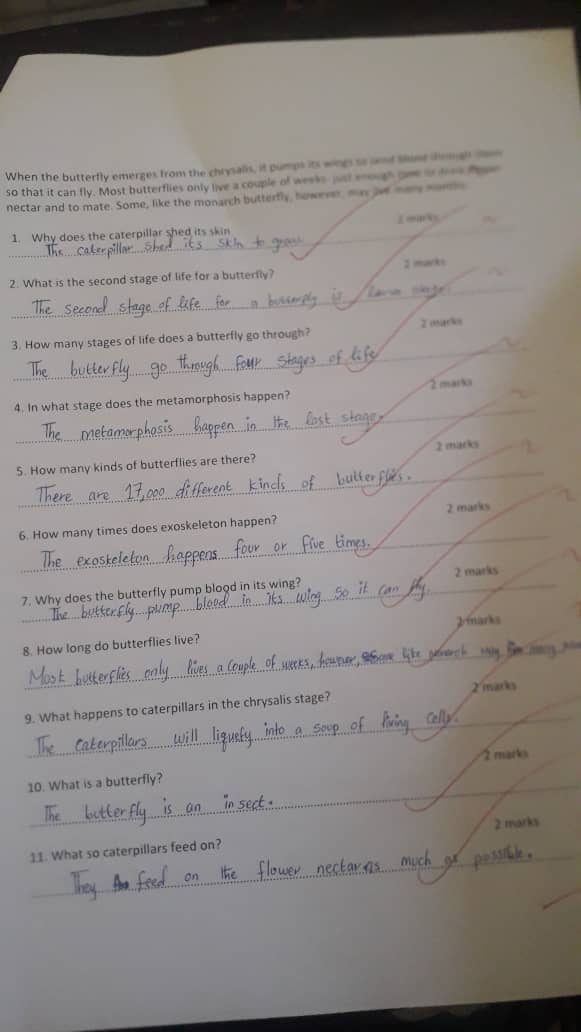 When the butterfly emerges from the chrysalis, it pumps its wings to send blood through them
so that it can fly. Most butterflies only live a couple of weeks just enough time to drink flower
nectar and to mate. Some, like the monarch butterfly, however, may live many months
1. Why does the caterpillar shed its skin
2 marks
The caterpillar shed its skin to grow
2. What is the second stage of life for a butterfly?
2 marks
The second stage of life for a butterfly is larva stage.
3. How many stages of life does a butterfly go through?
2 marks
The butterfly go through four stages of life
4. In what stage does the metamorphosis happen?
2 marks
The metamorphosis happen in the last stage.
5. How many kinds of butterflies are there?
2 marks
There are 17,000 different kinds of butterflies.
6. How many times does exoskeleton happen?
2 marks
The exoskeleton happens four or five times.
7. Why does the butterfly pump blood in its wing?
2 marks
The butterfly pump blood in its wing so it can fly.
8. How long do butterflies live?
2 marks
Most butterflies only lives a couple of weeks, however, some like monarch may live many
9. What happens to caterpillars in the chrysalis stage?
2 marks
The caterpillars will liquefy into a soup of living cells.
10. What is a butterfly?
2 marks
The butterfly is an insect.
11. What so caterpillars feed on?
2 marks
They feed on the flower nectar as much as possible.